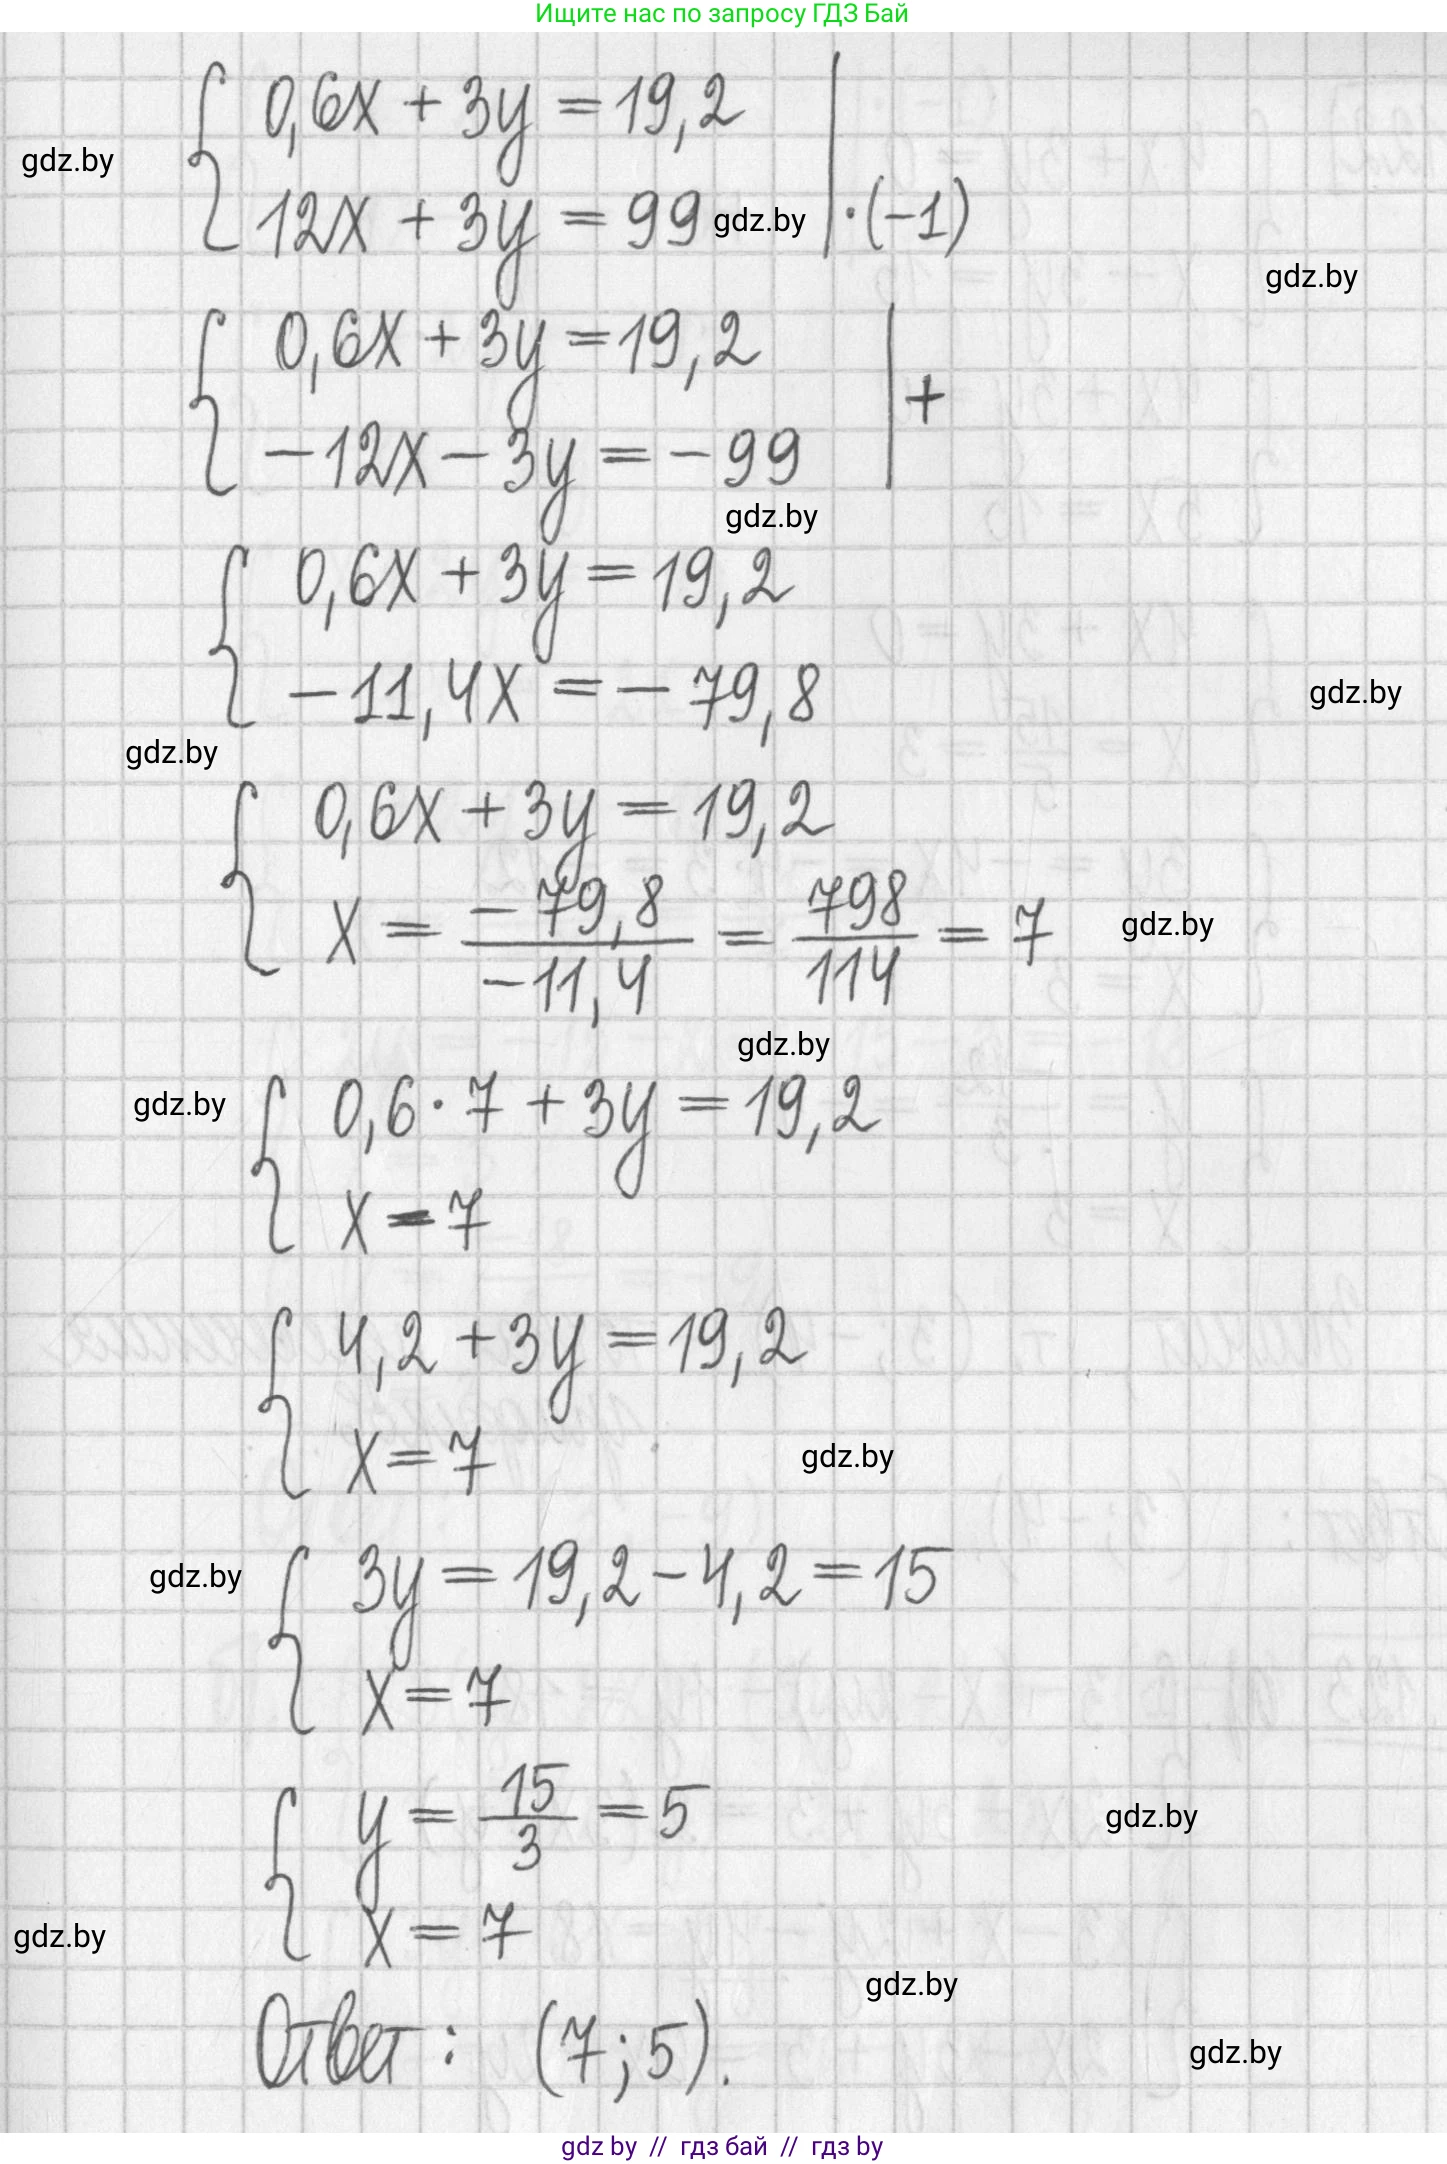 Ищите нас по запросу ГДЗ Бай
0,6x + 3y = 19,2
gdz.by
12x + 3y = 99 gdz.by | · (-1)
gdz.by
0,6x + 3y = 19,2
| +
-12x - 3y = -99
gdz.by
0,6x + 3y = 19,2
-11,4x = -79,8
gdz.by
gdz.by
0,6x + 3y = 19,2
x = -79,8 / -11,4 = 798 / 114 = 7 gdz.by
gdz.by
gdz.by 0,6 · 7 + 3y = 19,2
x = 7
4,2 + 3y = 19,2
x = 7 gdz.by
gdz.by 3y = 19,2 - 4,2 = 15
x = 7
y = 15 / 3 = 5 gdz.by
gdz.by x = 7
gdz.by
Ответ: (7; 5).
gdz.by
gdz by // гдз бай // гдз by